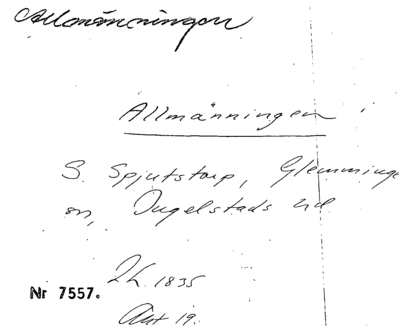 Allmänningen
Allmänningen
S. Spjutstorp, Glemminge
sn, Ingelstads hd.
Lh. 1835
Nr 7557.
Akt 19.